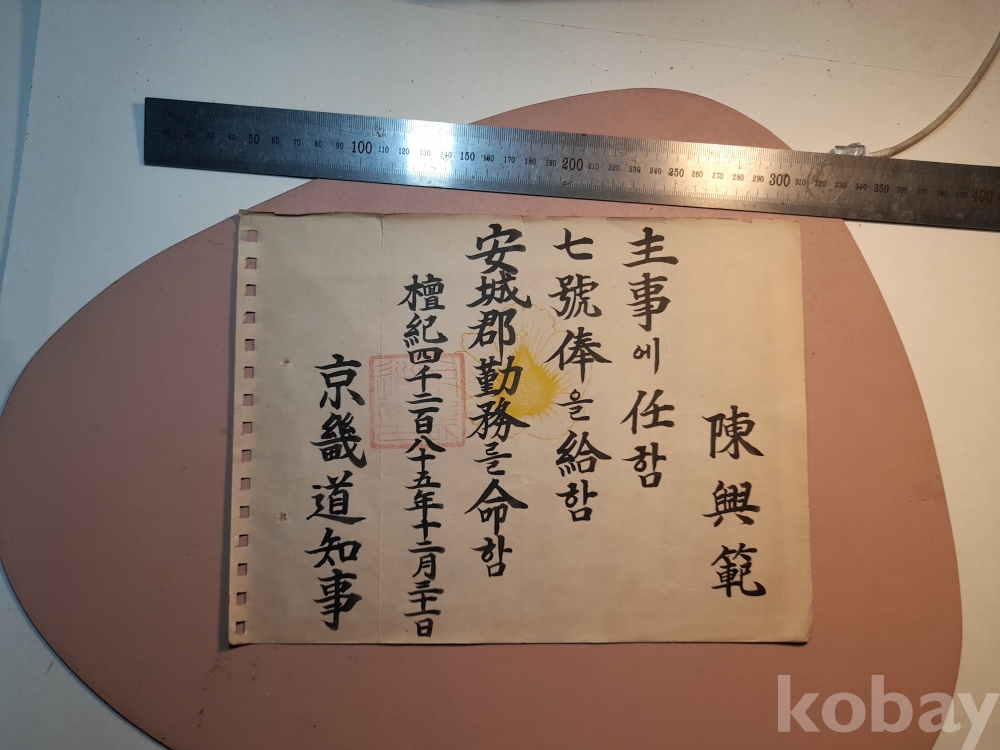 陳興範
主事에 任함
七號俸을 給함
安城郡勤務를 命함
檀紀四千二百八十五年十二月三十一日
京畿道知事
50 100 110 120 130 140 150 160 170 180 190 200 210 220 230 240 250 260 270 280 290 300 310 320 330 340 350 360 370 380 390 400
kobay